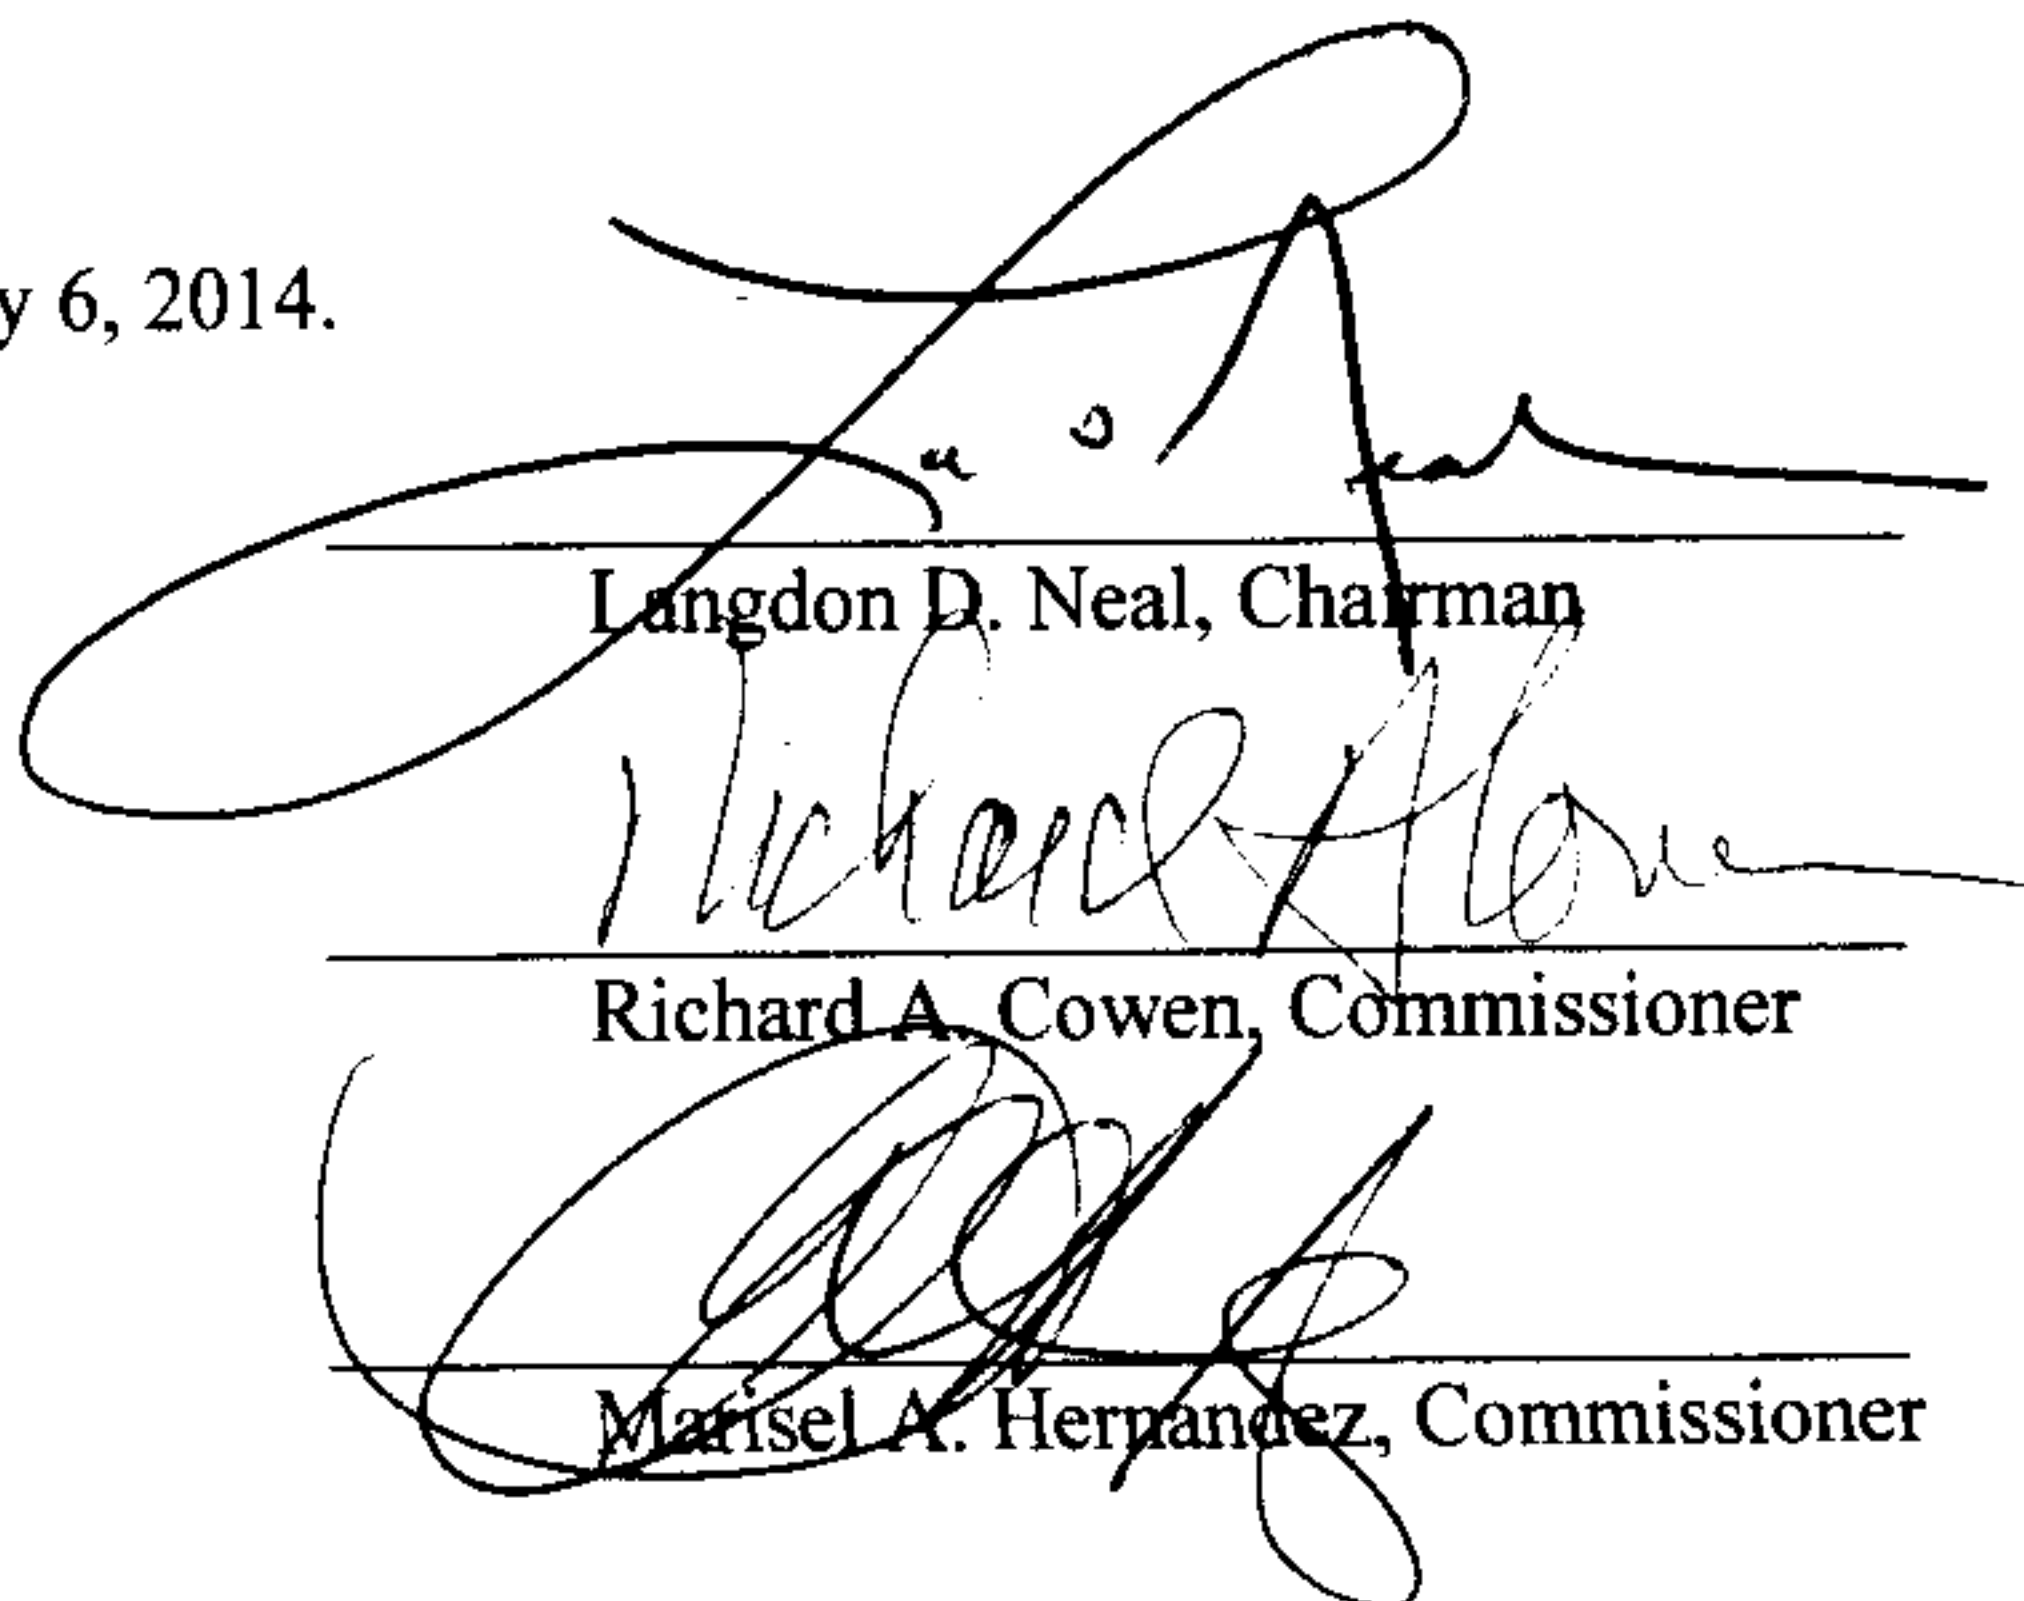 y 6, 2014.
Langdon D. Neal, Chairman
Richard A. Cowen, Commissioner
Marisel A. Hernandez, Commissioner